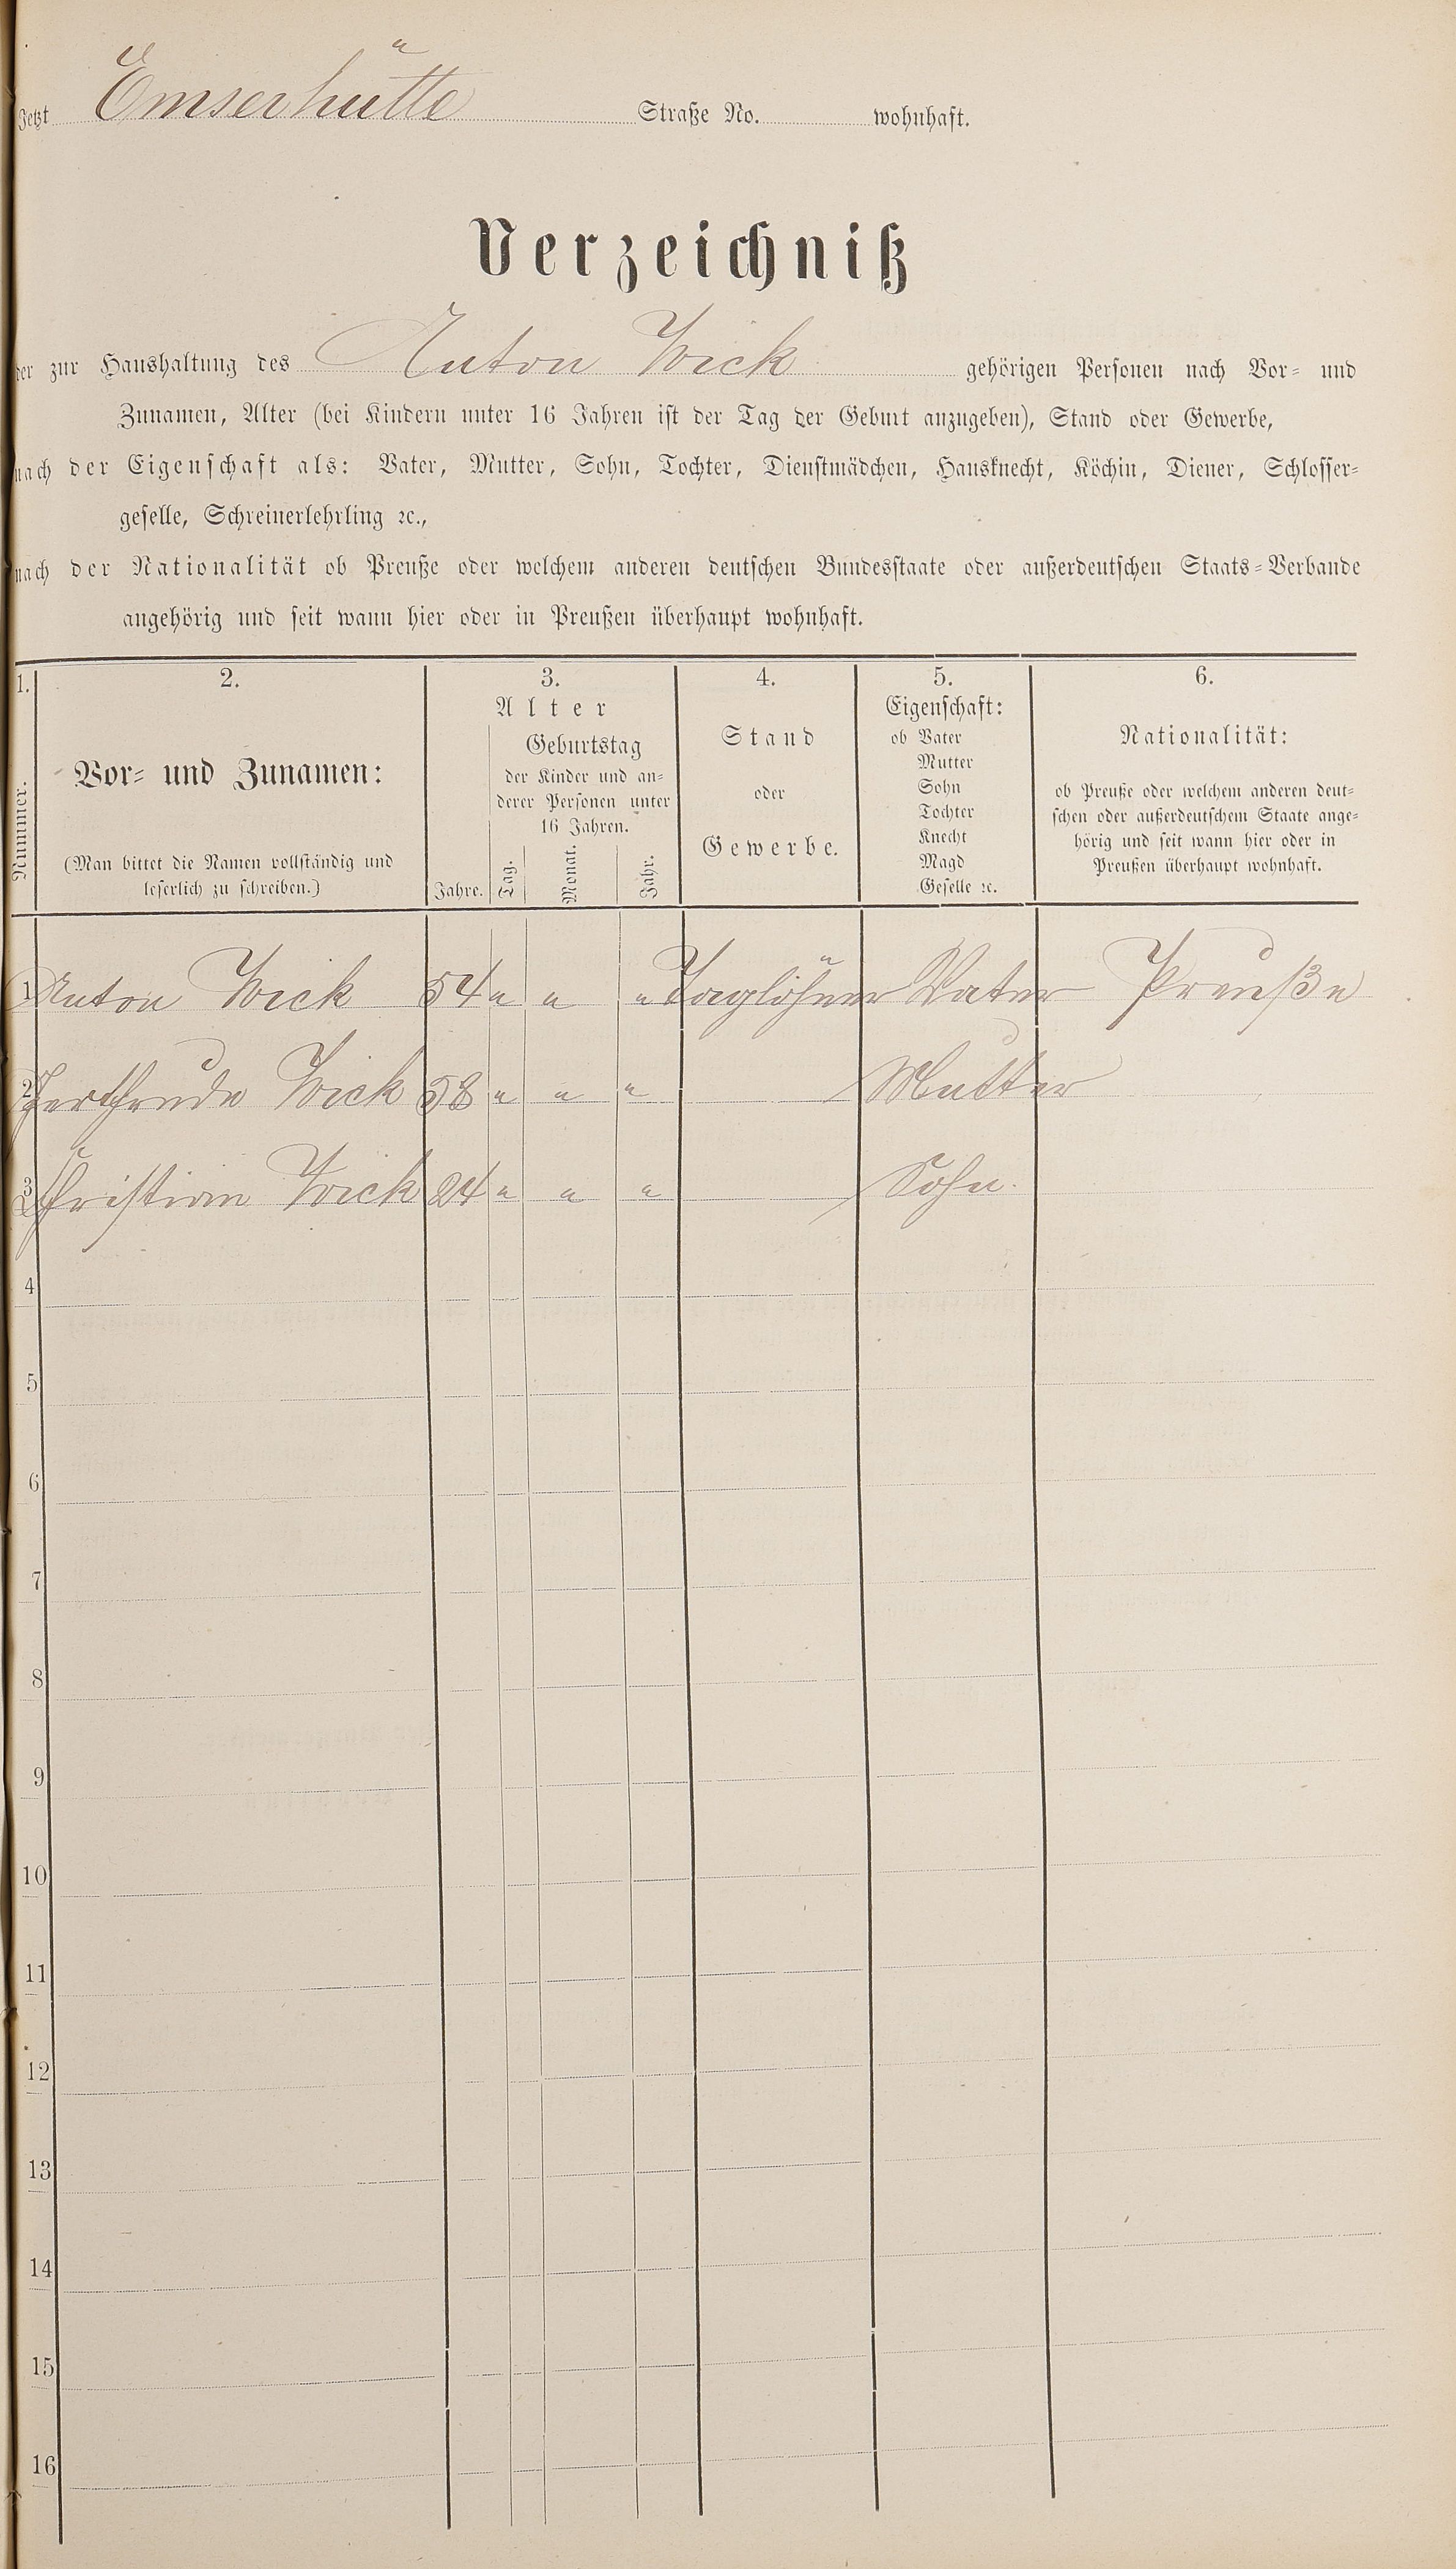 Jetzt Emserhütte Straße No. wohnhaft.
Verzeichniß
der zur Haushaltung des Anton Wick gehörigen Personen nach Vor- und
Zunamen, Alter (bei Kindern unter 16 Jahren ist der Tag der Geburt anzugeben), Stand oder Gewerbe,
nach der Eigenschaft als: Vater, Mutter, Sohn, Tochter, Dienstmädchen, Hausknecht, Köchin, Diener, Schlosser-
geselle, Schreinerlehrling ꝛc.,
nach der Nationalität ob Preuße oder welchem anderen deutschen Bundesstaate oder außerdeutschen Staats-Verbande
angehörig und seit wann hier oder in Preußen überhaupt wohnhaft.
1.
Nummer.
2.
Vor- und Zunamen:
(Man bittet die Namen vollständig und
leserlich zu schreiben.)
3.
Alter
Jahre.
Geburtstag
der Kinder und an-
derer Personen unter
16 Jahren.
Tag. Monat. Jahr.
4.
Stand
oder
Gewerbe.
5.
Eigenschaft:
ob Vater
Mutter
Sohn
Tochter
Knecht
Magd
Geselle ꝛc.
6.
Nationalität:
ob Preuße oder welchem anderen deut-
schen oder außerdeutschem Staate ange-
hörig und seit wann hier oder in
Preußen überhaupt wohnhaft.
1 Anton Wick 54 " " " Taglöhner Vater Preuße
2 Gerthrude Wick 58 " " " Mutter
3 Christian Wick 24 " " " Sohn.
4
5
6
7
8
9
10
11
12
13
14
15
16